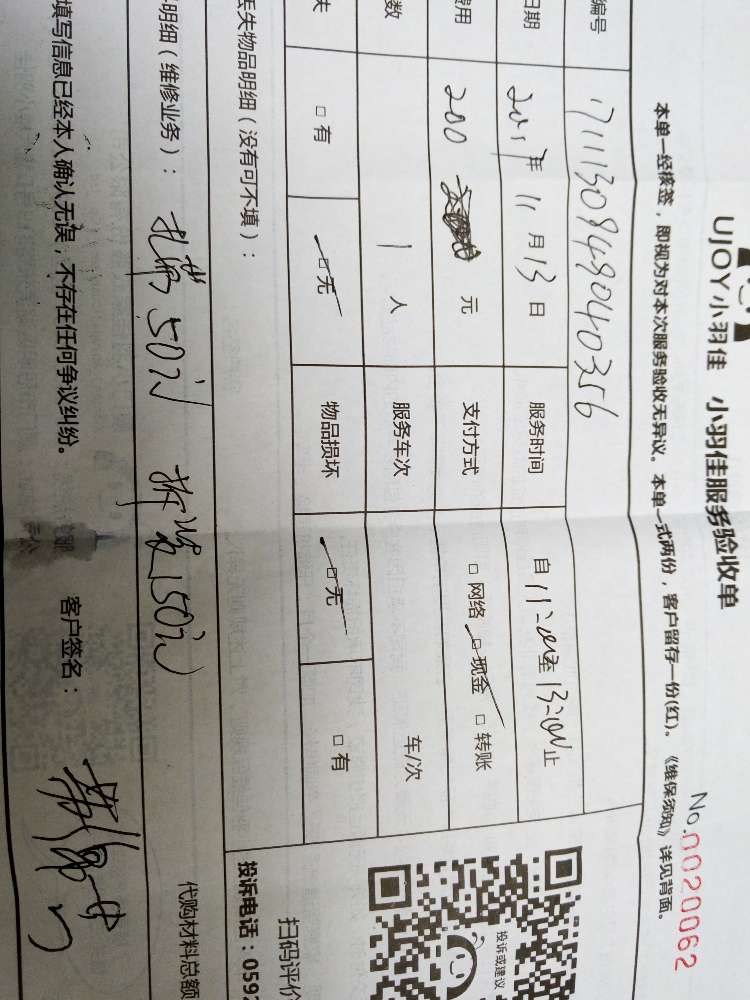 UJOY小羽佳 小羽佳服务验收单
No.0020062
本单一经核签，即视为对本次服务验收无异议。本单一式两份，客户留存一份(红)。《维保须知》详见背面。
编号 171113094904035 6
日期 2017年 11月13日 服务时间 自11:00至13:00止
费用 200 元 支付方式 □网络 □现金 □转账
数 1 人 服务车次 车/次
失 □有 □无 物品损坏 □无 □有
丢失物品明细（没有可不填）：
投诉或建议
扫码评价
投诉电话：0592
明细（维修业务）： 50元 拆装150元
代购材料总额
填写信息已经本人确认无误，不存在任何争议纠纷。 客户签名：